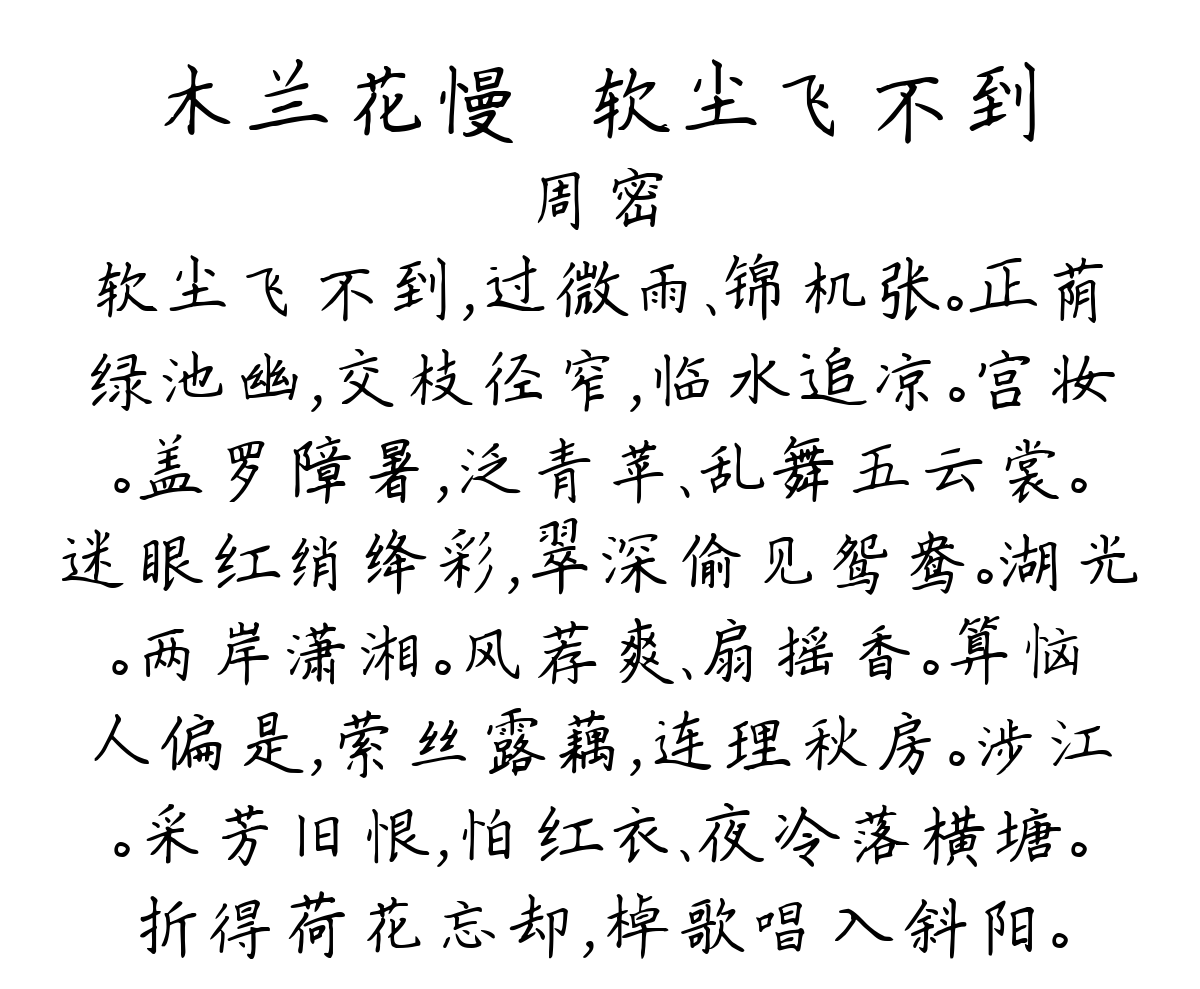 木兰花慢 软尘飞不到
周密
软尘飞不到,过微雨、锦机张。正荫
绿池幽,交枝径窄,临水追凉。宫妆
。盖罗障暑,泛青苹、乱舞五云裳。
迷眼红绡绛彩,翠深偷见鸳鸯。湖光
。两岸潇湘。风荐爽、扇摇香。算恼
人偏是,萦丝露藕,连理秋房。涉江
。采芳旧恨,怕红衣、夜冷落横塘。
折得荷花忘却,棹歌唱入斜阳。